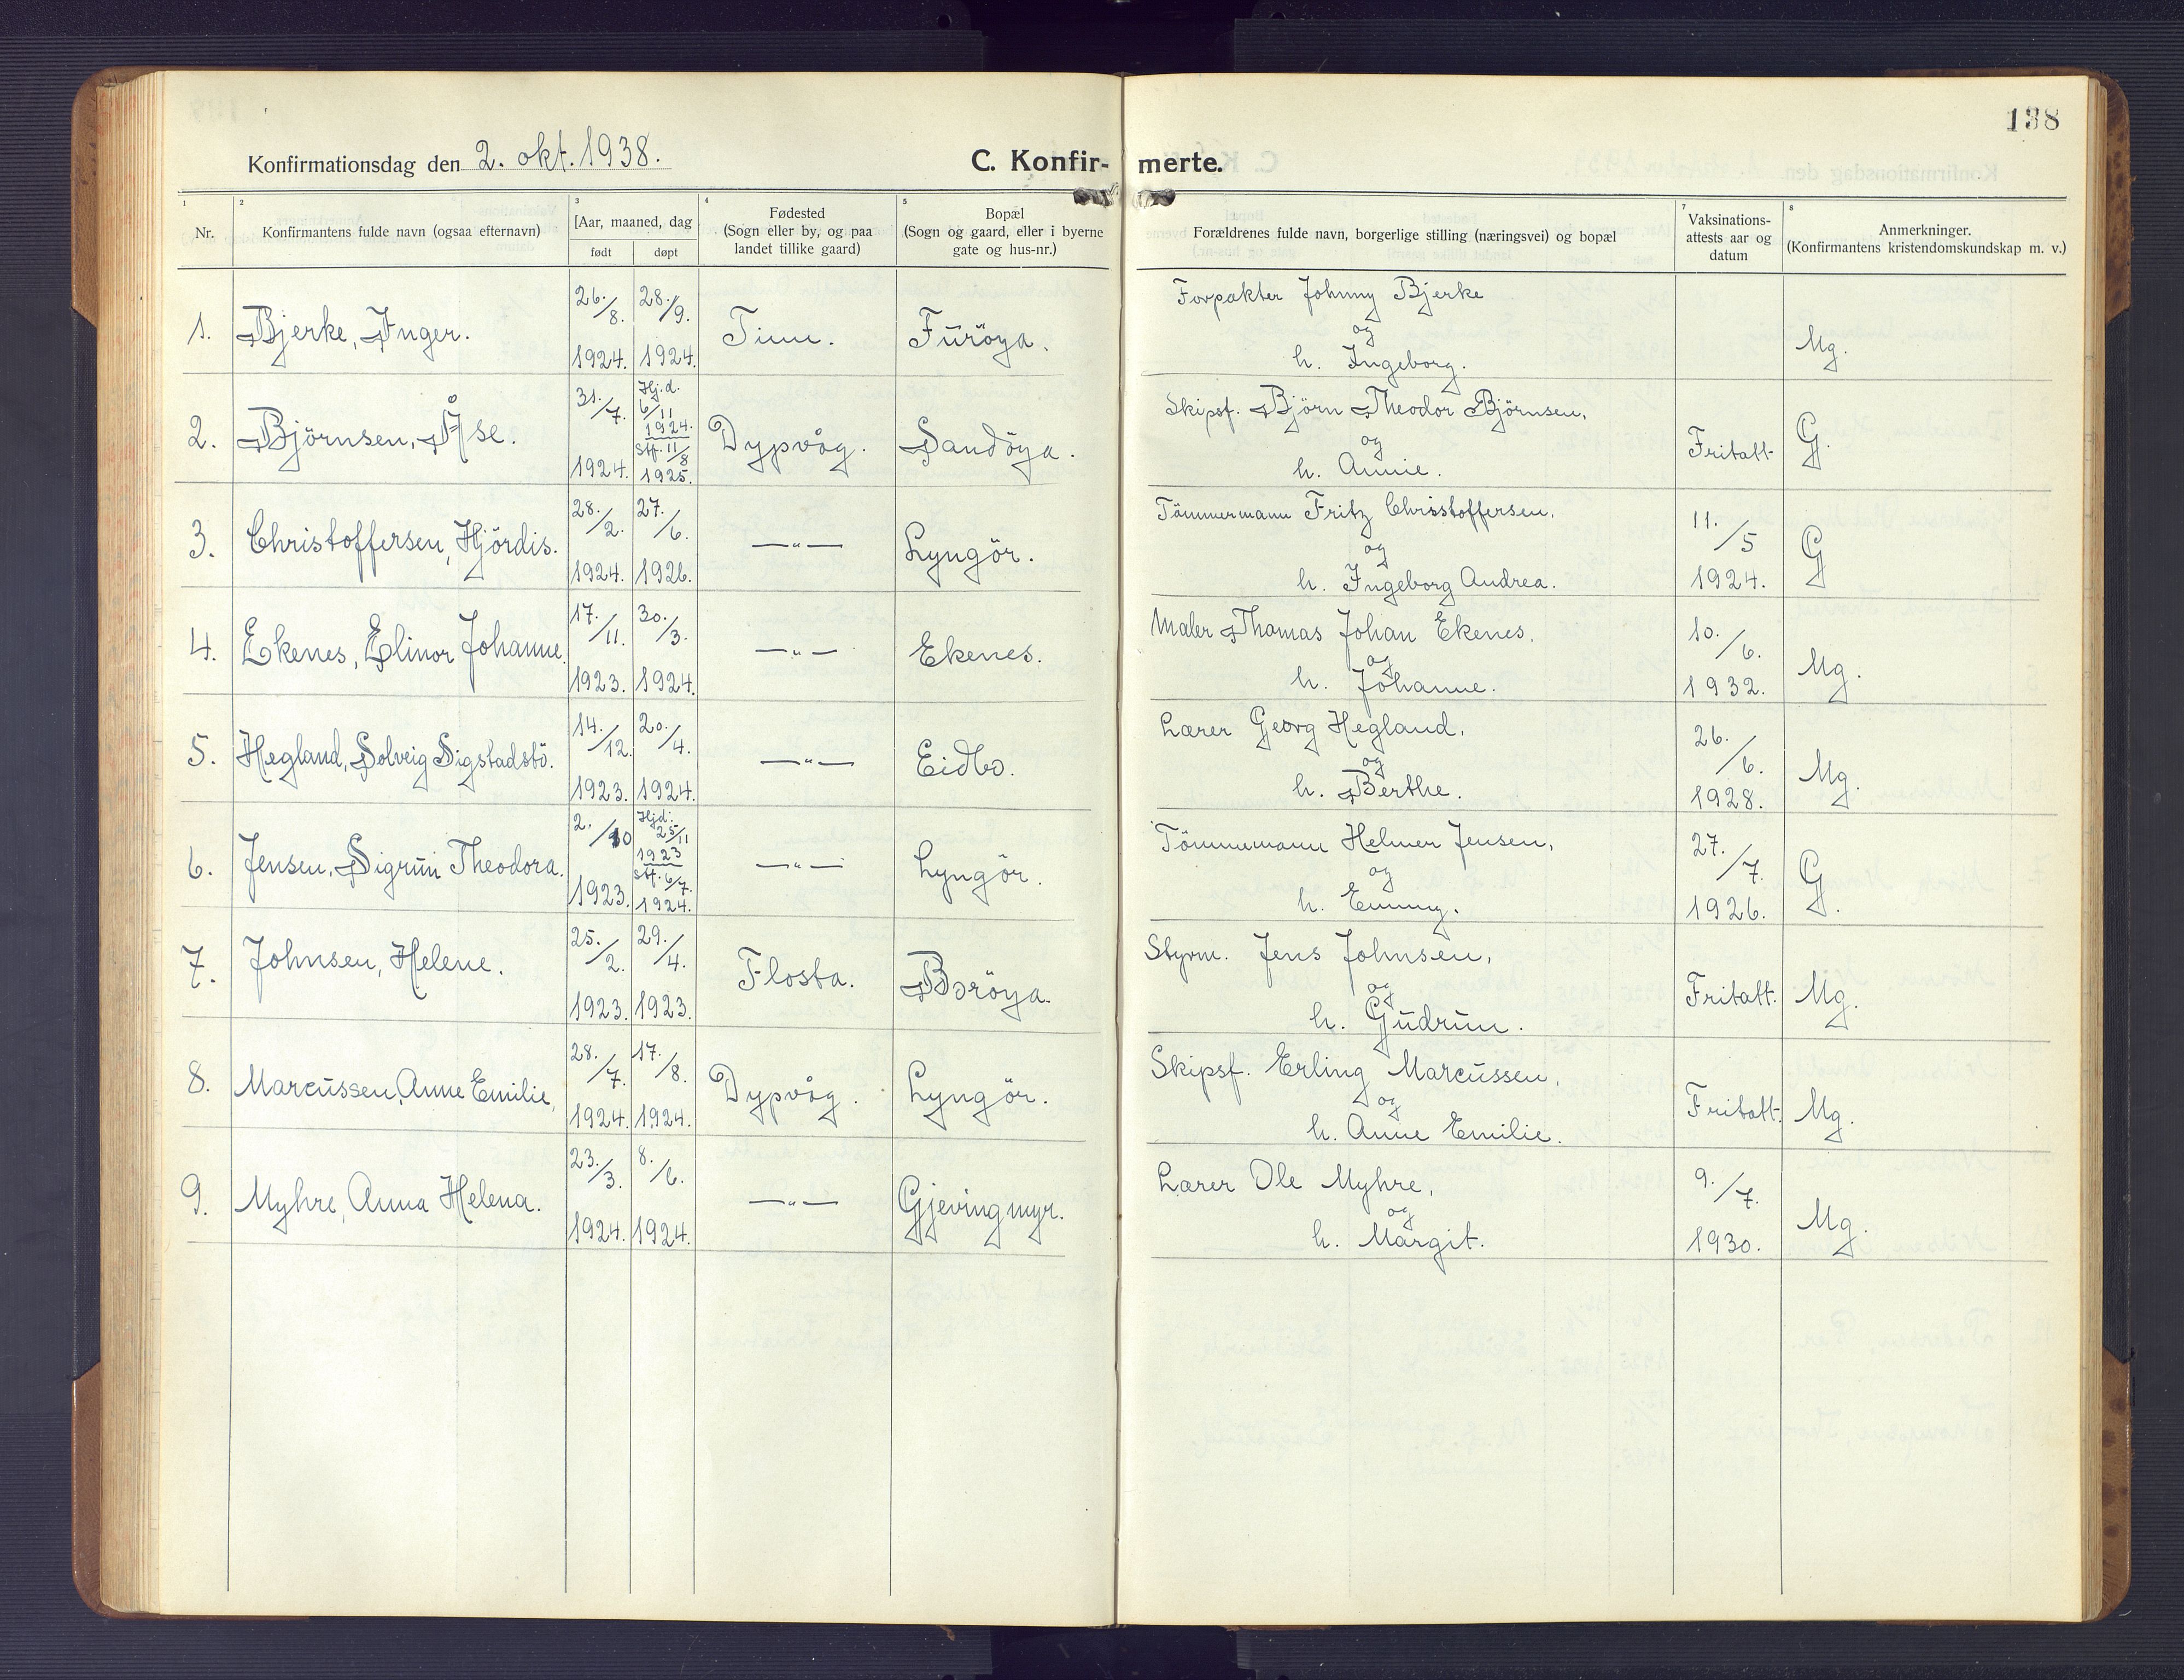 138
Konfirmationsdag den 2. okt. 1938.
C. Konfir- merte.
1 2 3 4 5 7 8
Nr.
Konfirmantens fulde navn (ogsaa efternavn)
[Aar, maaned, dag
født døpt
Fødested
(Sogn eller by, og paa
landet tillike gaard)
Bopæl
(Sogn og gaard, eller i byerne
gate og hus-nr.)
Forældrenes fulde navn, borgerlige stilling (næringsvei) og bopæl
Vaksinations-
attests aar og
datum
Anmerkninger.
(Konfirmantens kristendomskundskap m. v.)
1. Bjerke, Inger. 26./8. 1924. 28./9. 1924. Time. Furöya. Forpakter Johnny Bjerke
og
h. Ingeborg. Mg.
2. Björnsen, Åse. 31./7. 1924. Hj.d. 6/11 1924. Stf. 11/8 1925. Dypvåg. Sandöya. Skipsf. Björn Theodor Björnsen,
og
h. Annie. Fritatt G.
3. Christoffersen, Hjördis. 28./2. 1924. 27./6. 1926. —"— Lyngör. Tömmermann Fritz Christoffersen,
og
h. Ingeborg Andrea. 11./5 1924. G
4. Ekenes, Elinor Johanne. 17./11. 1923. 30./3. 1924. —"— Ekenes. Maler Thomas Johan Ekenes,
og
h. Johanne. 10./6. 1932. Mg.
5. Hegland, Solveig Sigstadstö. 14./12. 1923. 20./4. 1924. —"— Eidbo. Lærer Georg Hegland,
og
h. Berthe. 26./6. 1928. Mg.
6. Jensen, Sigrun Theodora. 2./10 1923. Hjd: 25/11 1923 Stf. 6/7. 1924. —"— Lyngör. Tömmemann Helmer Jensen,
og
h. Emmy. 27./7. 1926. G.
7. Johnsen, Helene. 25./2. 1923. 29./4. 1923. Flosta. Boröya. Styrm. Jens Johnsen,
og
h. Gudrun. Fritatt. Mg.
8. Marcussen, Anne Emilie, 28./7. 1924. 17./8. 1924. Dypvåg. Lyngör. Skipsf. Erling Marcussen,
og
h. Anne Emilie. Fritatt. Mg.
9. Myhre, Anna Helena. 23./3. 1924. 8./6. 1924. —"— Gjevingmyr. Lærer Ole Myhre,
og
h. Margit. 9./7. 1930. Mg.